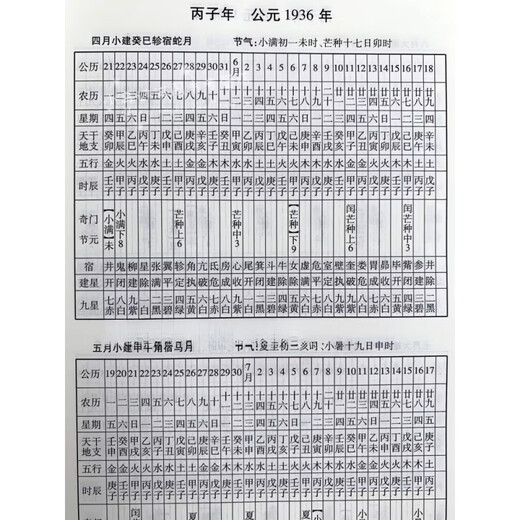 丙子年 公元1936年
四月小建癸巳轸宿蛇月 节气:小满初一未时、芒种十七日卯时
公历 21 22 23 24 25 26 27 28 29 30 31 6月 2 3 4 5 6 7 8 9 10 11 12 13 14 15 16 17 18
农历 一 二 三 四 五 六 七 八 九 十 十一 十二 十三 十四 十五 十六 十七 十八 十九 二十 廿一 廿二 廿三 廿四 廿五 廿六 廿七 廿八 廿九
星期 四 五 六 日 一 二 三 四 五 六 日 一 二 三 四 五 六 日 一 二 三 四 五 六 日 一 二 三 四
天干地支 癸卯 甲辰 乙巳 丙午 丁未 戊申 己酉 庚戌 辛亥 壬子 癸丑 甲寅 乙卯 丙辰 丁巳 戊午 己未 庚申 辛酉 壬戌 癸亥 甲子 乙丑 丙寅 丁卯 戊辰 己巳 庚午 辛未
五行 金 火 火 水 水 土 土 金 金 木 木 水 水 土 土 火 火 木 木 水 水 金 金 火 火 木 木 土 土
时辰 壬子 甲子 丙子 戊子 庚子 壬子 甲子 丙子 戊子 庚子 壬子 甲子 丙子 戊子 庚子 壬子 甲子 丙子 戊子 庚子 壬子 甲子 丙子 戊子 庚子 壬子 甲子 丙子 戊子
奇门节元 【小满】未 小满下8 芒种上6 芒种中3 【芒种】下9 闰芒种上6 闰芒种中3
宿 井 鬼 柳 星 张 翼 轸 角 亢 氐 房 心 尾 箕 斗 牛 女 虚 危 室 壁 奎 娄 胃 昴 毕 觜 参 井
建星 开 闭 建 除 满 平 定 执 破 危 成 收 开 闭 建 除 除 满 平 定 执 破 危 成 收 开 闭 建 除
九星 七赤 八白 九紫 一白 二黑 三碧 四绿 五黄 六白
五月小建甲午角宿马月 节气:夏至初三亥时;小暑十九日申时
公历 19 20 21 22 23 24 25 26 27 28 29 30 7月 2 3 4 5 6 7 8 9 10 11 12 13 14 15 16 17
农历 一 二 三 四 五 六 七 八 九 十 十一 十二 十三 十四 十五 十六 十七 十八 十九 二十 廿一 廿二 廿三 廿四 廿五 廿六 廿七 廿八 廿九
星期 五 六 日 一 二 三 四 五 六 日 一 二 三 四 五 六 日 一 二 三 四 五 六 日 一 二 三 四 五
天干地支 壬申 癸酉 甲戌 乙亥 丙子 丁丑 戊寅 己卯 庚辰 辛巳 壬午 癸未 甲申 乙酉 丙戌 丁亥 戊子 己丑 庚寅 辛卯 壬辰 癸巳 甲午 乙未 丙申 丁酉 戊戌 己亥 庚子
五行 金 金 火 火 水 水 土 土 金 金 木 木 水 水 土 土 火 火 木 木 水 水 金 金 火 火 木 木 土
时辰 庚子 壬子 甲子 丙子 戊子 庚子 壬子 甲子 丙子 戊子 庚子 壬子 甲子 丙子 戊子 庚子 壬子 甲子 丙子 戊子 庚子 壬子 甲子 丙子 戊子 庚子 壬子 甲子 丙子